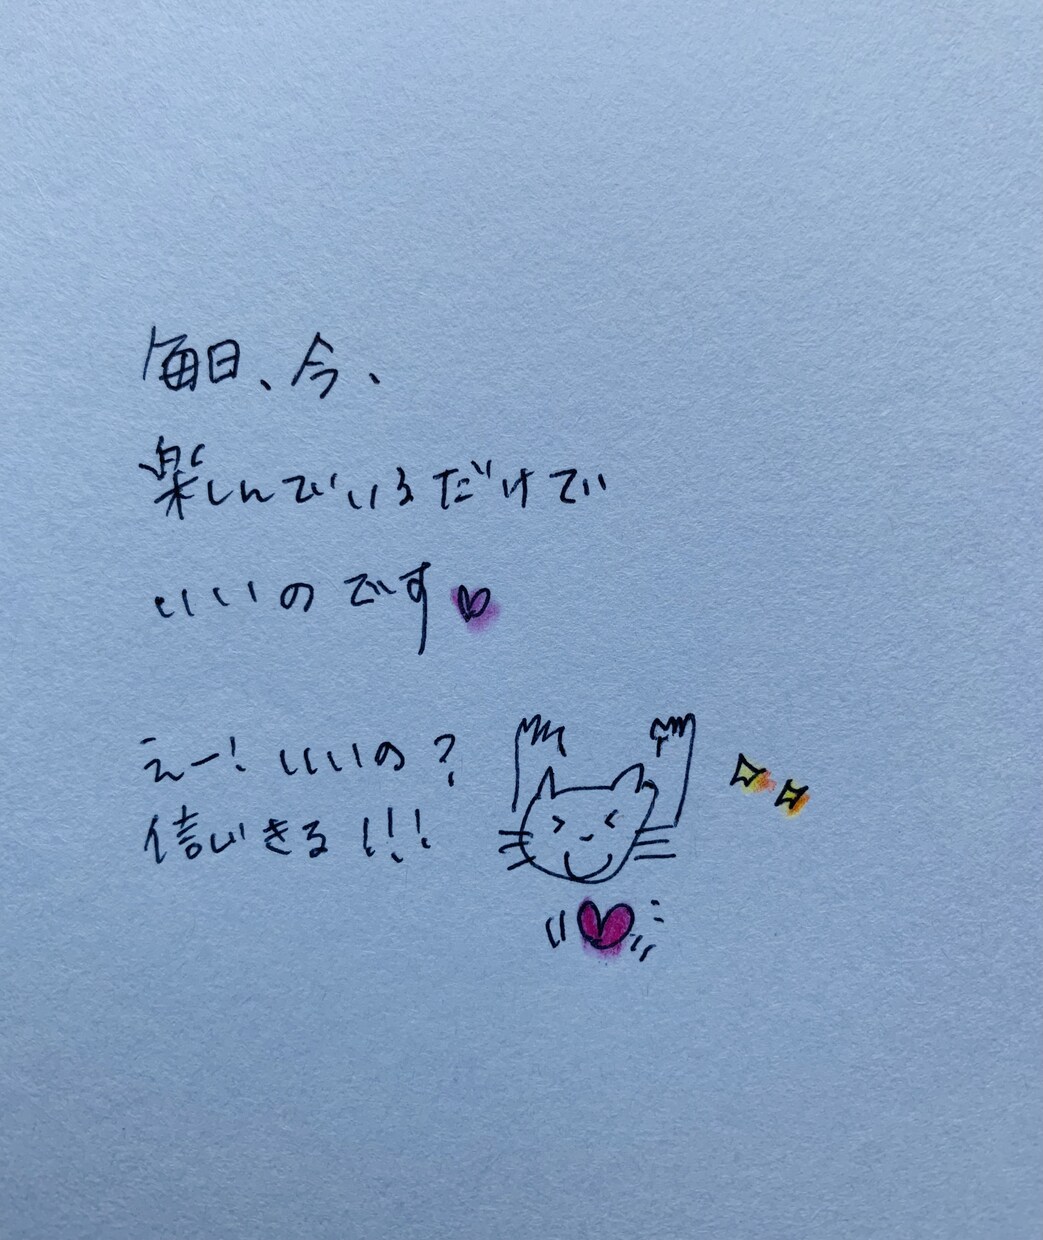 毎日、今、
楽しんでいるだけで
いいのです♡
えー!いいの?
信じきる!!!